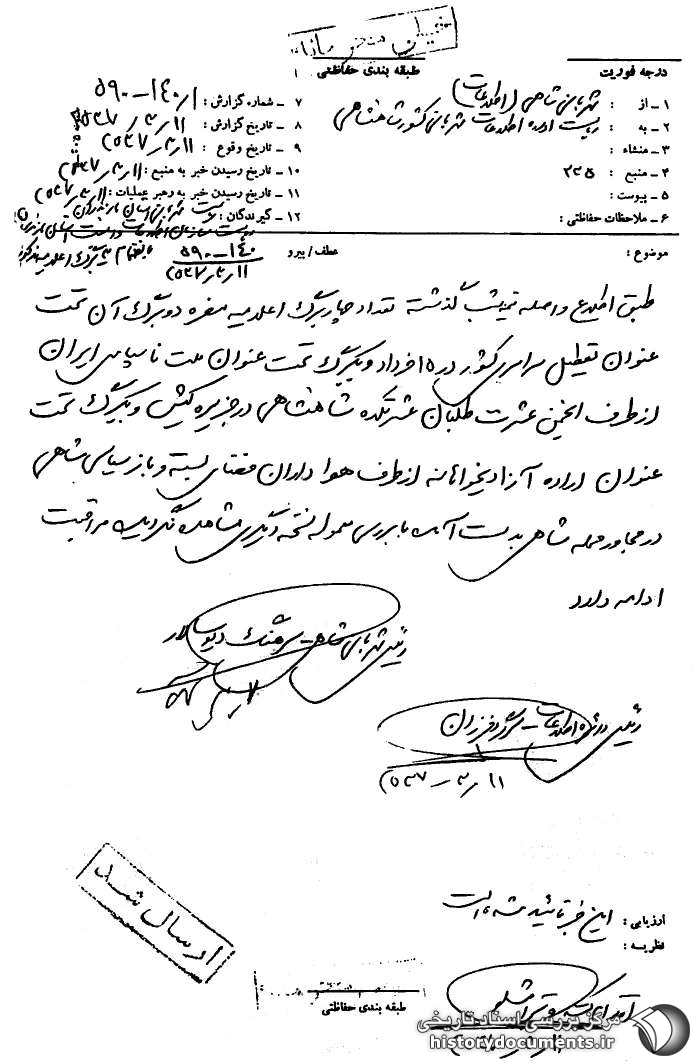 خیلی محرمانه
طبقه بندی حفاظتی
درجه فوریت
۱ ـ از : شهربانی شاهی (اطلاعات)
۲ ـ به : ریاست اداره اطلاعات شهربانی کشور شاهنشاهی
۳ ـ منشاء :
۴ ـ منبع : ۲۳۵
۵ ـ پیوست :
۶ ـ ملاحظات حفاظتی :
۷ ـ شماره گزارش :
۸ ـ تاریخ گزارش :
۹ ـ تاریخ وقوع :
۱۰ ـ تاریخ رسیدن خبر به منبع :
۱۱ ـ تاریخ رسیدن خبر به رهبر عملیات :
۱۲ ـ گیرندگان :
موضوع :
عطف / پیرو
طبق اطلاع واصله نیمشب گذشته تعداد چهار برگ اعلامیه مضره دو برگ آن تحت
عنوان تعطیل سراسری کشور در ۱۵ خرداد و یکبرگ تحت عنوان ملت ناسپاس ایران
از طرف انجمن عشرت طلبان عشرتکده شاهنشاهی در جزیره کیش و یکبرگ تحت
عنوان اراده آزادیخواهانه از طرف هواداران فضای بسته و باز سیاسی شاهی
در مجاور محله شاهی بدست آمده با بررسی معموله نسخه دیگری مشاهده نگردیده مراقبت
ادامه دارد
رئیس شهربانی شاهی ـ سرهنگ دیوسالار
رئیس دایره اطلاعات ـ سرگرد فرزان
ارسال شد
ارزیابی : این خبر تائید شده است
نظریه :
طبقه بندی حفاظتی
مرکز بررسی اسناد تاریخی
historydocuments.ir